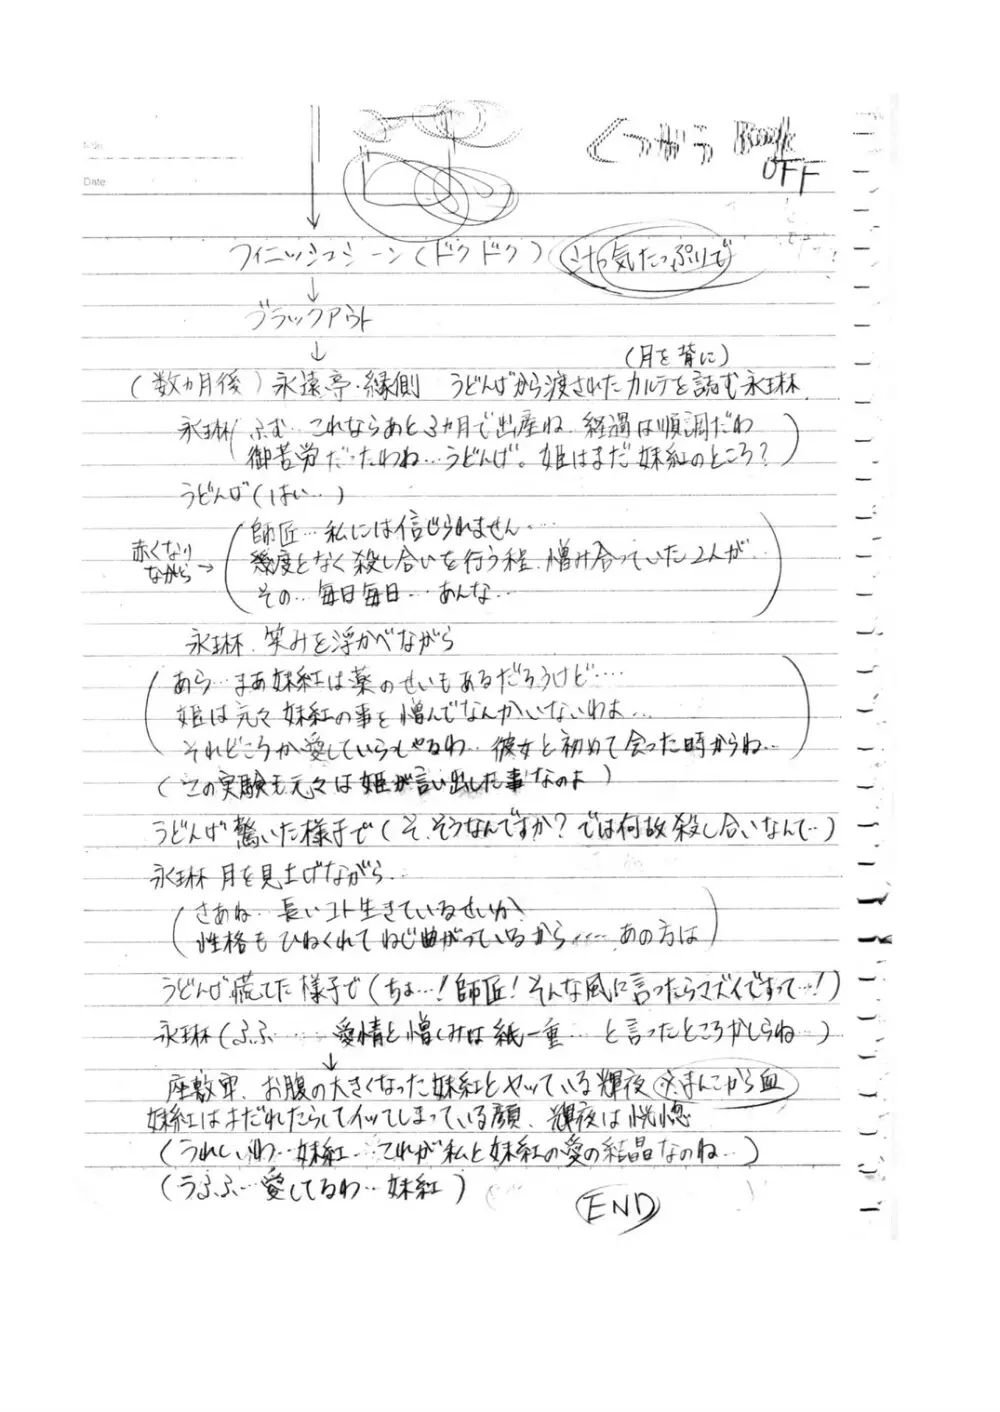 Date
OFF
フィニッシュシーン(ドクドク) 汁っ気たっぷりで
↓
ブラックアウト
↓
(月を背に)
(数ヵ月後)永遠亭・縁側 うどんげから渡されたカルテを読む永琳.
永琳(ふむ…これならあと3ヵ月で出産ね 経過は順調だわ
御苦労だったわね…うどんげ。姫はまだ妹紅のところ?)
うどんげ(はい…)
赤くなり
ながら→
(師匠…私には信じられません…
幾度となく殺し合いを行う程、憎み合っていた2人が、
その…毎日毎日…あんな…)
永琳、笑みを浮かべながら
(あら…まあ妹紅は薬のせいもあるだろうけど…
姫は元々妹紅の事を憎んでなんかいないわよ…
それどころか愛していらっしゃるわ…彼女と初めて会った時からね…)
(この実験も元々は姫が言い出した事なのよ)
うどんげ驚いた様子で(そ、そうなんですか?では何故殺し合いなんて…)
永琳 月を見上げながら、
(さあね…長いコト生きているせいか、
性格もひねくれてねじ曲がっているから……あの方は)
うどんげ慌てた様子で(ちょ…!師匠!そんな風に言ったらマズイですって…!)
永琳(ふふ……愛情と憎しみは紙一重…と言ったところかしらね…)
↓
座敷牢、お腹の大きくなった妹紅とヤッている輝夜 ※まんこから血
妹紅はよだれたらしてイッてしまっている顔、輝夜は恍惚
(うれしいわ…妹紅…これが私と妹紅の愛の結晶なのね…)
(うふふ…愛してるわ…妹紅)
END